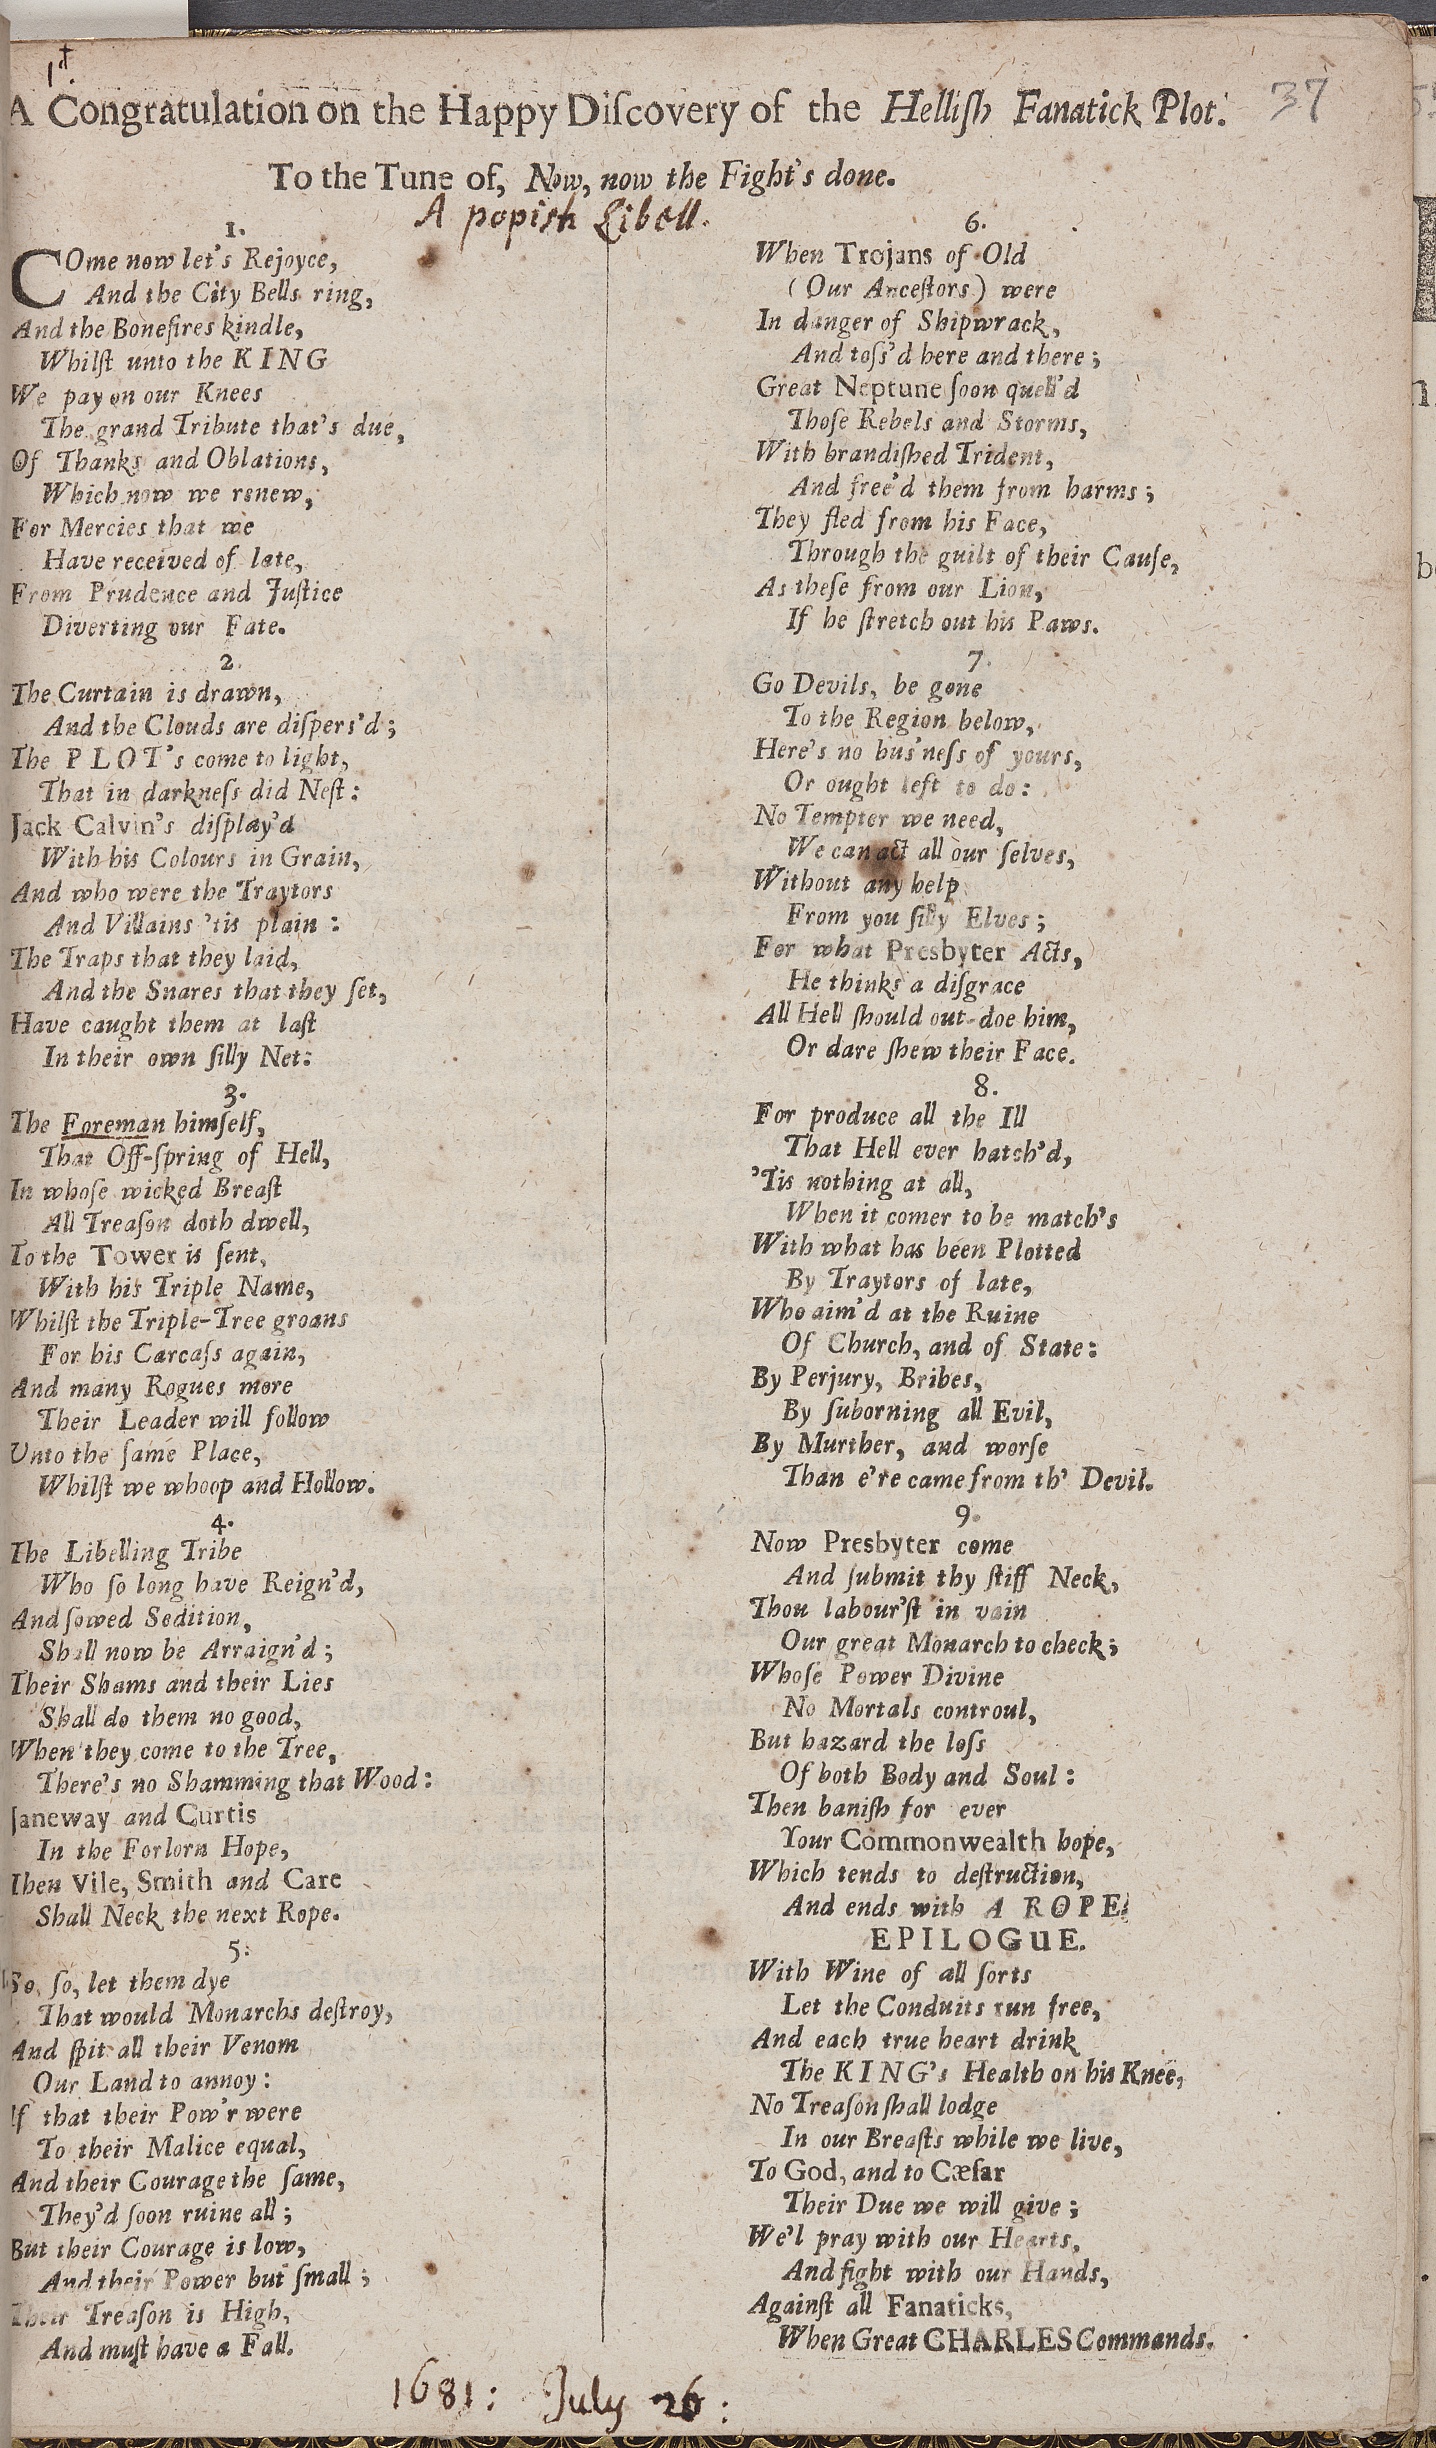 1t.
37
A Congratulation on the Happy Diſcovery of the Helliſh Fanatick Plot.
To the Tune of, Now, now the Fight's done.
A popish Libell.
1.
COme now let's Rejoyce,
And the City Bells ring,
And the Bonefires kindle,
Whilſt unto the KING
We pay on our Knees
The grand Tribute that's due,
Of Thanks and Oblations,
Which now we renew,
For Mercies that we
Have received of late,
From Prudence and Juſtice
Diverting our Fate.
2.
The Curtain is drawn,
And the Clouds are diſpers'd;
The PLOT's come to light,
That in darkneſs did Neſt:
Jack Calvin's diſplay'd
With his Colours in Grain,
And who were the Traytors
And Villains 'tis plain:
The Traps that they laid,
And the Snares that they ſet,
Have caught them at laſt
In their own ſilly Net:
3.
The Foreman himſelf,
That Off-ſpring of Hell,
In whoſe wicked Breaſt
All Treaſon doth dwell,
To the Tower is ſent,
With his Triple Name,
Whilſt the Triple-Tree groans
For his Carcaſs again,
And many Rogues more
Their Leader will follow
Unto the ſame Place,
Whilſt we whoop and Hollow.
4.
The Libelling Tribe
Who ſo long have Reign'd,
And ſowed Sedition,
Shall now be Arraign'd;
Their Shams and their Lies
Shall do them no good,
When they come to the Tree,
There's no Shamming that Wood:
Janeway and Curtis
In the Forlorn Hope,
Then Vile, Smith and Care
Shall Neck the next Rope.
5.
So, ſo, let them dye
That would Monarchs deſtroy,
And ſpit all their Venom
Our Land to annoy:
If that their Pow'r were
To their Malice equal,
And their Courage the ſame,
They'd ſoon ruine all;
But their Courage is low,
And their Power but ſmall;
Their Treaſon is High,
And muſt have a Fall.
6.
When Trojans of Old
(Our Anceſtors) were
In danger of Shipwrack,
And toſs'd here and there;
Great Neptune ſoon quell'd
Thoſe Rebels and Storms,
With brandiſhed Trident,
And free'd them from harms;
They fled from his Face,
Through the guilt of their Cauſe,
As theſe from our Lion,
If he ſtretch out his Paws.
7.
Go Devils, be gone
To the Region below,
Here's no bus'neſs of yours,
Or ought left to do:
No Tempter we need,
We can act all our ſelves,
Without any help
From you ſilly Elves;
For what Presbyter Acts,
He thinks a diſgrace
All Hell ſhould out-doe him,
Or dare ſhew their Face.
8.
For produce all the Ill
That Hell ever hatch'd,
'Tis nothing at all,
When it comer to be match's
With what has been Plotted
By Traytors of late,
Who aim'd at the Ruine
Of Church, and of State:
By Perjury, Bribes,
By ſuborning all Evil,
By Murther, and worſe
Than e're came from th' Devil.
9.
Now Presbyter come
And ſubmit thy ſtiff Neck,
Thou labour'ſt in vain
Our great Monarch to check;
Whoſe Power Divine
No Mortals controul,
But hazard the loſs
Of both Body and Soul:
Then baniſh for ever
Your Commonwealth hope,
Which tends to deſtruction,
And ends with A ROPE!
EPILOGUE.
With Wine of all ſorts
Let the Conduits run free,
And each true heart drink
The KING's Health on his Knee,
No Treaſon ſhall lodge
In our Breaſts while we live,
To God, and to Cæſar
Their Due we will give;
We'l pray with our Hearts,
And fight with our Hands,
Againſt all Fanaticks,
When Great CHARLES Commands.
1681: July 26: